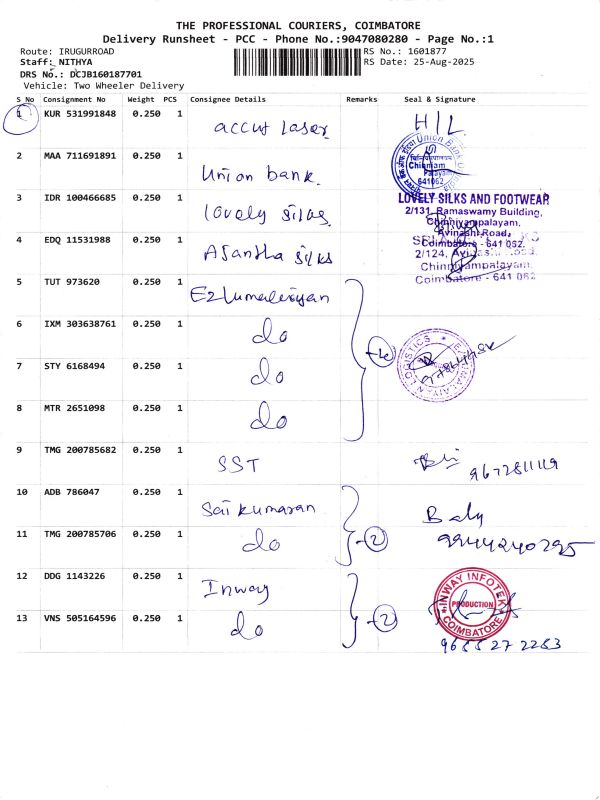 THE PROFESSIONAL COURIERS, COIMBATORE
Delivery Runsheet - PCC - Phone No.:9047080280 - Page No.:1
Route: IRUGURROAD
RS No.: 1601877
Staff: NITHYA
RS Date: 25-Aug-2025
DRS No.: DCJB160187701
Vehicle: Two Wheeler Delivery
S No Consignment No Weight PCS Consignee Details Remarks Seal & Signature
1 KUR 531991848 0.250 1 accut laser H/L
2 MAA 711691891 0.250 1 Union bank. Union Bank Chinniam Palayam 641062
3 IDR 100466685 0.250 1 lovely silks
LOVELY SILKS AND FOOTWEAR
2/131, Ramaswamy Building,
Chinniyampalayam,
Avinashi Road,
Coimbatore - 641 062.
4 EDQ 11531988 0.250 1 Asantha silks
2/124, Avinashi Road,
Chinniyampalayam,
Coimbatore - 641 062
5 TUT 973620 0.250 1 Ezhumalaiyan
6 IXM 303638761 0.250 1 do
7 STY 6168494 0.250 1 do
LOGISTICS
8 MTR 2651098 0.250 1 do
9 TMG 200785682 0.250 1 SST
10 ADB 786047 0.250 1 Sai kumaran Baly
11 TMG 200785706 0.250 1 do 2 9944240295
12 DDG 1143226 0.250 1 Inway INWAY INFOTEK PRODUCTION COIMBATORE
13 VNS 505164596 0.250 1 do 2